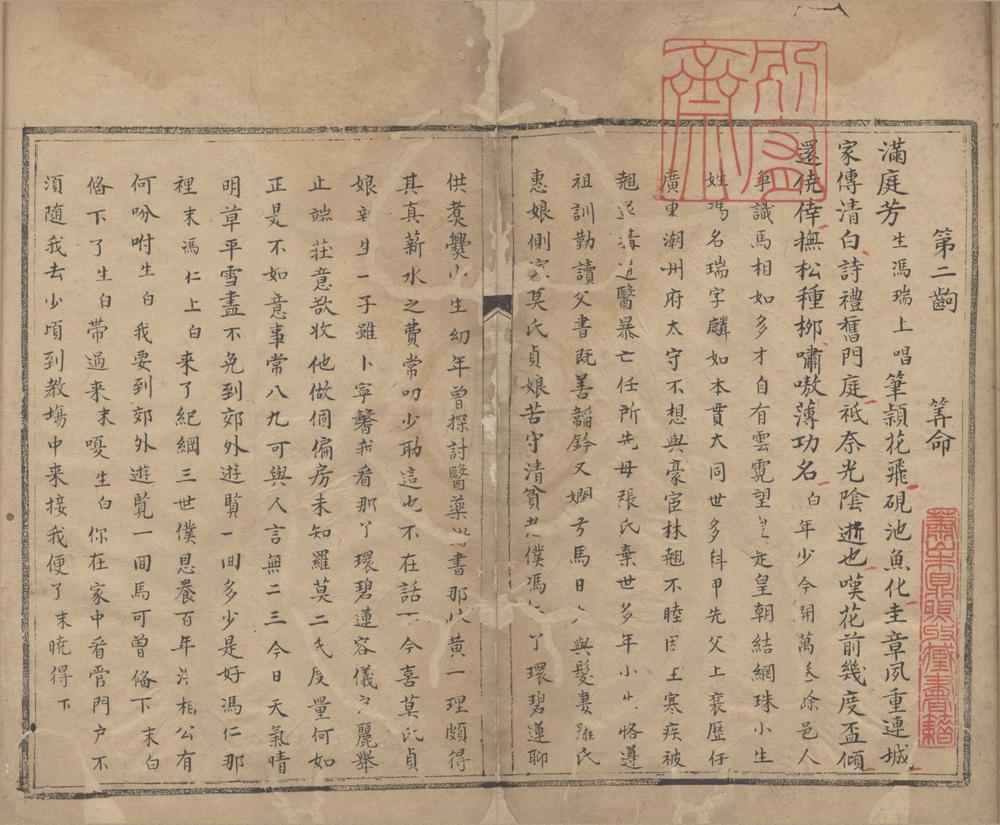 第二齣 筭命
滿庭芳 生馮瑞上唱 筆頴花飛硯池魚化圭章夙重連城
家傳清白詩禮舊門庭祇奈光陰逝也嘆花前幾度盃傾
還僥倖撫松種栁嘯嗷薄功名 白 年少今開萬 餘邑人
爭識馬相如多才自有雲霓望 是皇朝結網珠小生
姓馮名瑞字麟如本貫大同世多科甲先父上衮歷任
廣東潮州府太守不想與豪宦林翹不睦因 寒疾被
翹 暴亡任所先母張氏棄世多年小生恪遵
祖訓勤讀父書既善韜鈐又嫻弓馬日 與髮妻羅氏
惠娘側室莫氏貞娘苦守清貧 僕馮 了環碧蓮聊
供𤎅爨小生幼年曾探討醫藥 書那岐黄一理頗得
其真薪水之費常叨少助這也不在話下今喜莫氏貞
娘新生一子雖卜寧馨我看那了環碧蓮容儀 麗舉
止端莊意欲收他做個偏房未知羅莫二氏度量何如
正是不如意事常八九可與人言無二三今日天氣晴
明草平雪盡不免到郊外遊覧一囬多少是好馮仁那
裡 末馮仁上白 来了紀綱三世僕恩養百年 相公有
何吩咐 生白 我要到郊外遊覧一囬馬可曾俻下 末白
俻下了 生白 帶過来 末 嗄 生白 你在家中看管門户不
湏随我去少頃到教塲中来接我便了 末 暁得 下